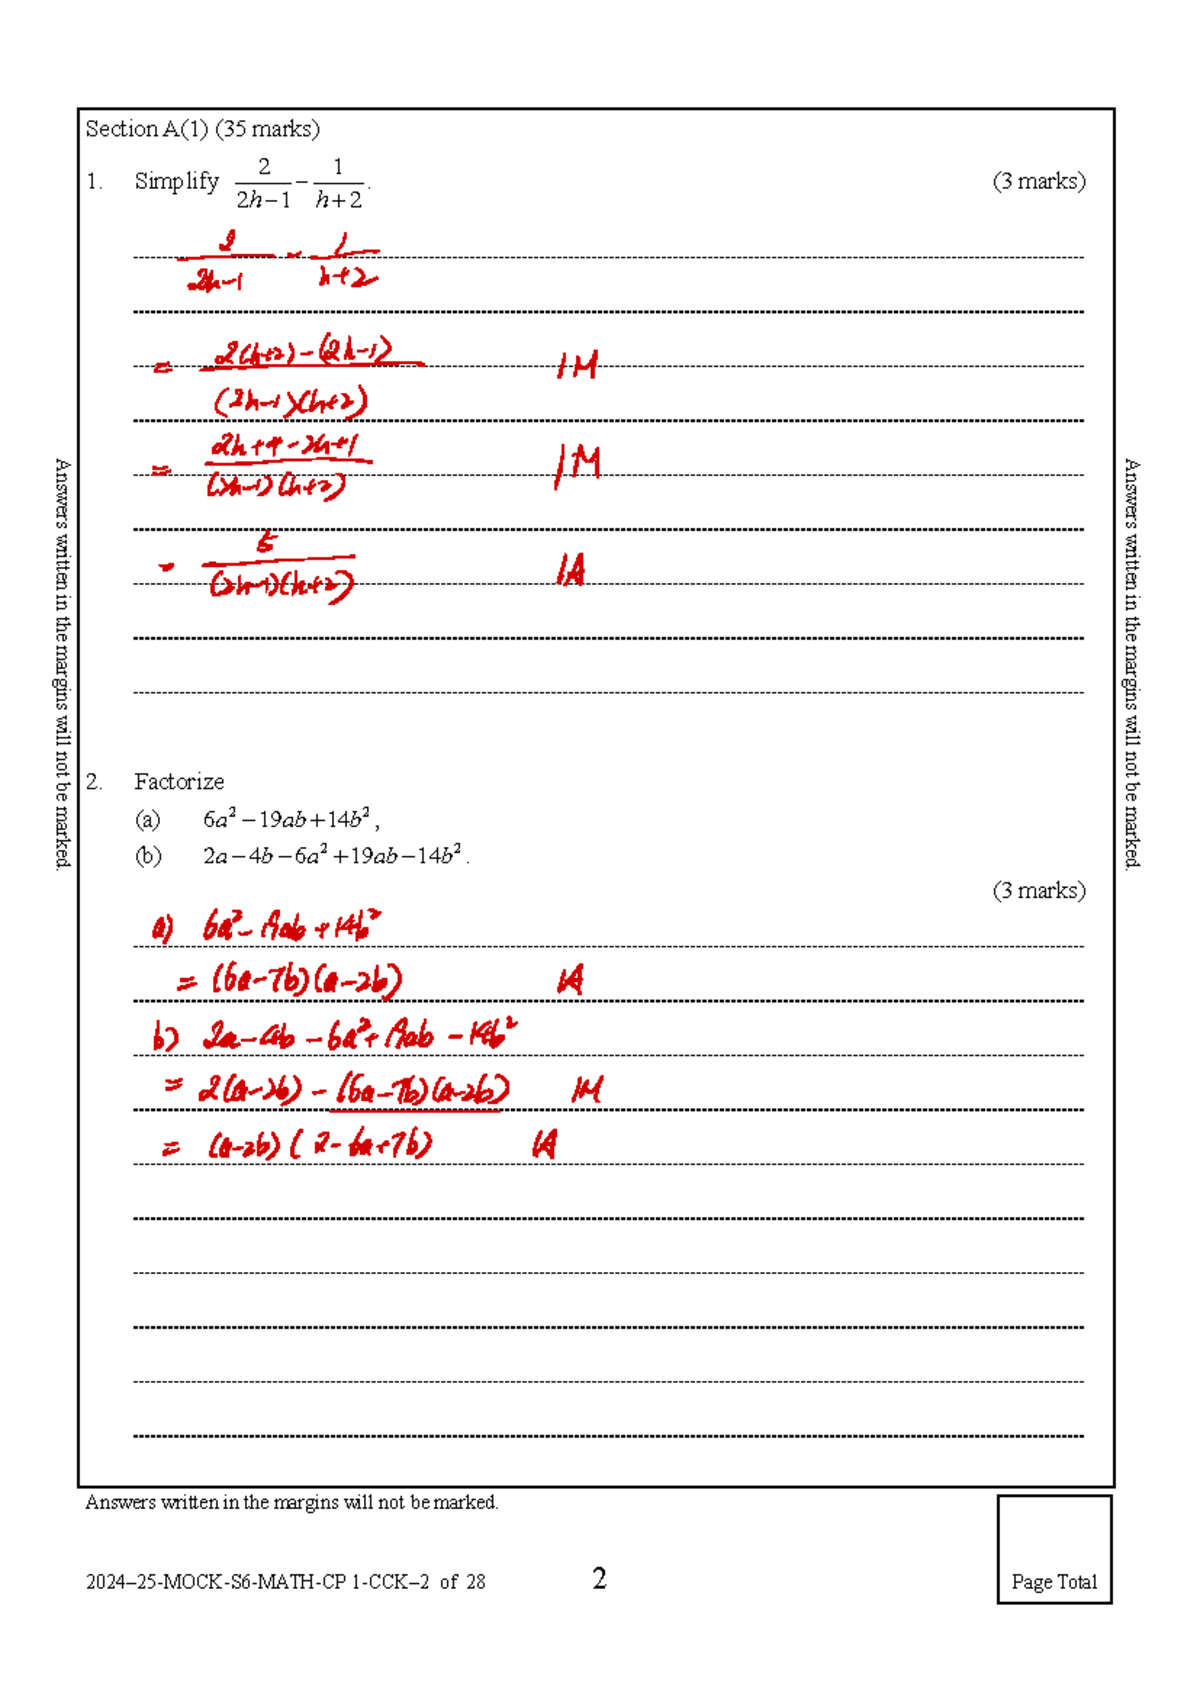 Section A(1) (35 marks)
1. Simplify 2/(2h−1) − 1/(h+2). (3 marks)
2/(2h−1) − 1/(h+2)
= (2(h+2)−(2h−1))/((2h−1)(h+2)) 1M
= (2h+4−2h+1)/((2h−1)(h+2)) 1M
= 5/((2h−1)(h+2)) 1A
2. Factorize
(a) 6a²−19ab+14b²,
(b) 2a−4b−6a²+19ab−14b².
(3 marks)
a) 6a²−19ab+14b²
= (6a−7b)(a−2b) 1A
b) 2a−4b−6a²+19ab−14b²
= 2(a−2b)−(6a−7b)(a−2b) 1M
= (a−2b)(2−6a+7b) 1A
Answers written in the margins will not be marked.
Answers written in the margins will not be marked.
Answers written in the margins will not be marked.
2024–25-MOCK-S6-MATH-CP 1-CCK–2 of 28
2
Page Total